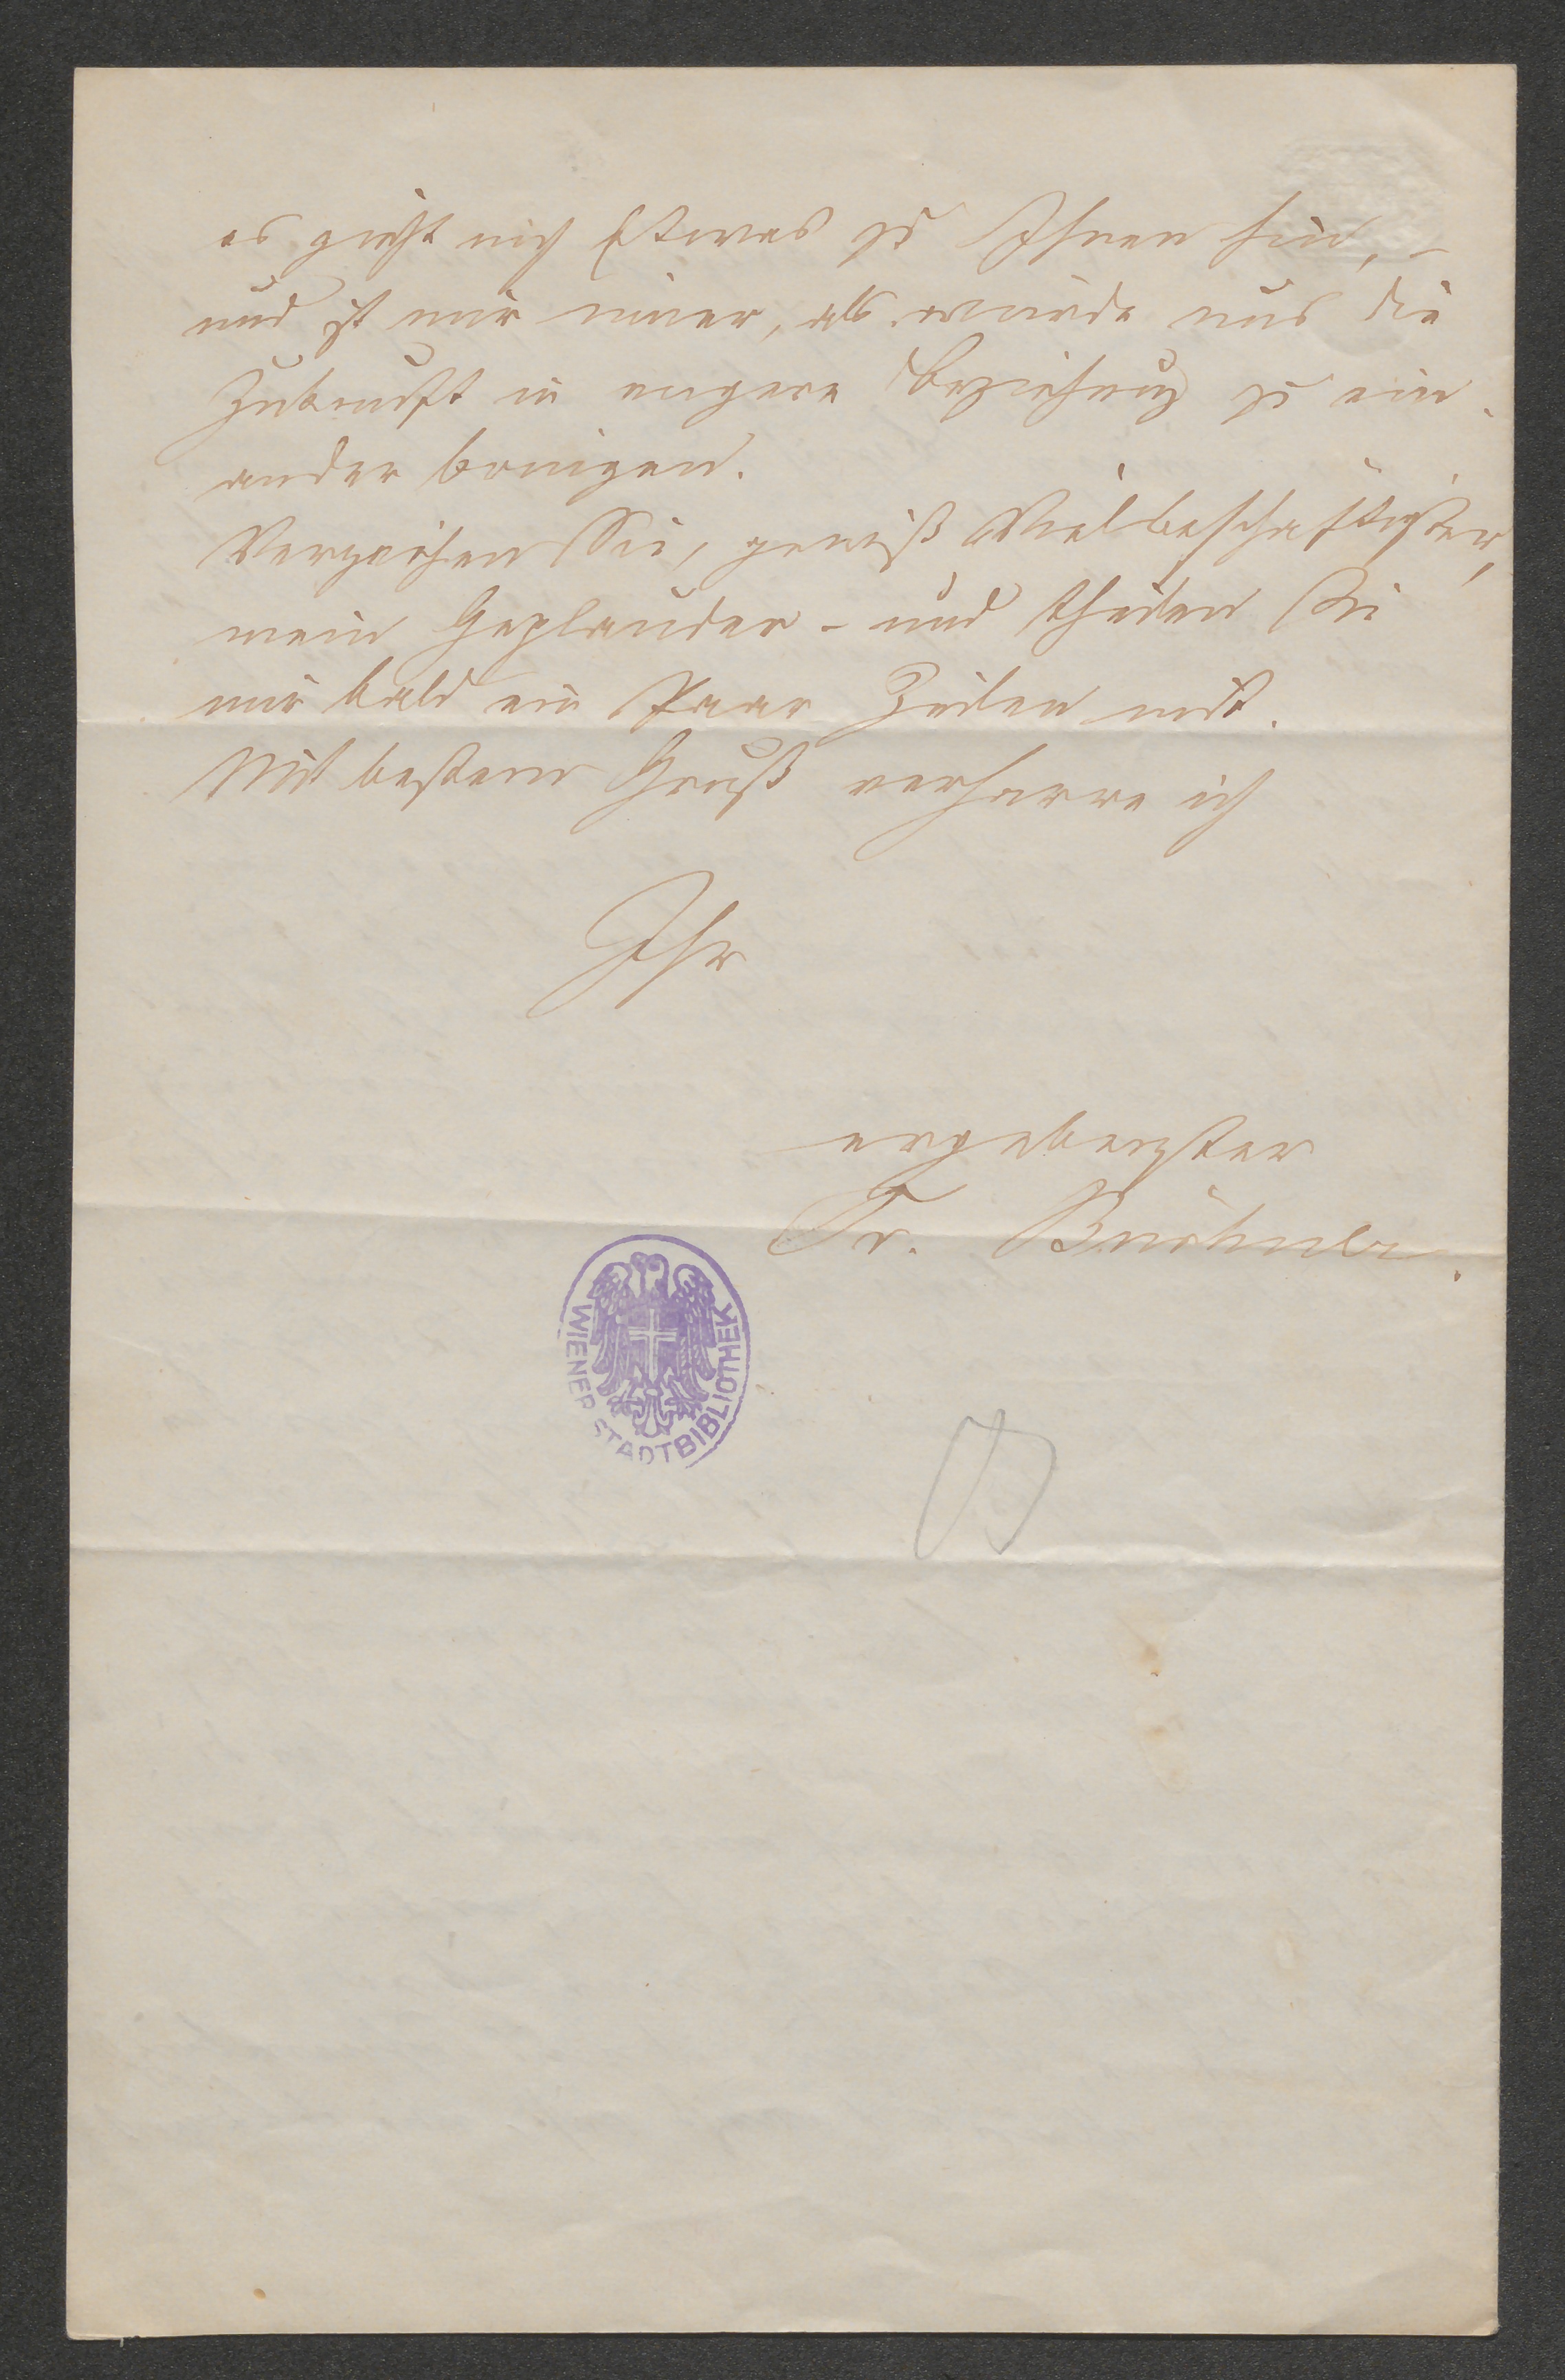 es zieht mich Etwas zu Ihnen hin, –
und ist mir immer, als würde uns die
Zukunft in engere Beziehung zu ein-
ander bringen.
Verzeihen Sie, gewiß Vielbeschäftigter,
mein Geplauder – und theilen Sie
mir bald ein Paar Zeilen mit.
Mit bestem Gruß verharre ich
Ihr
ergebenster
Fr.
WIENER STADTBIBLIOTHEK